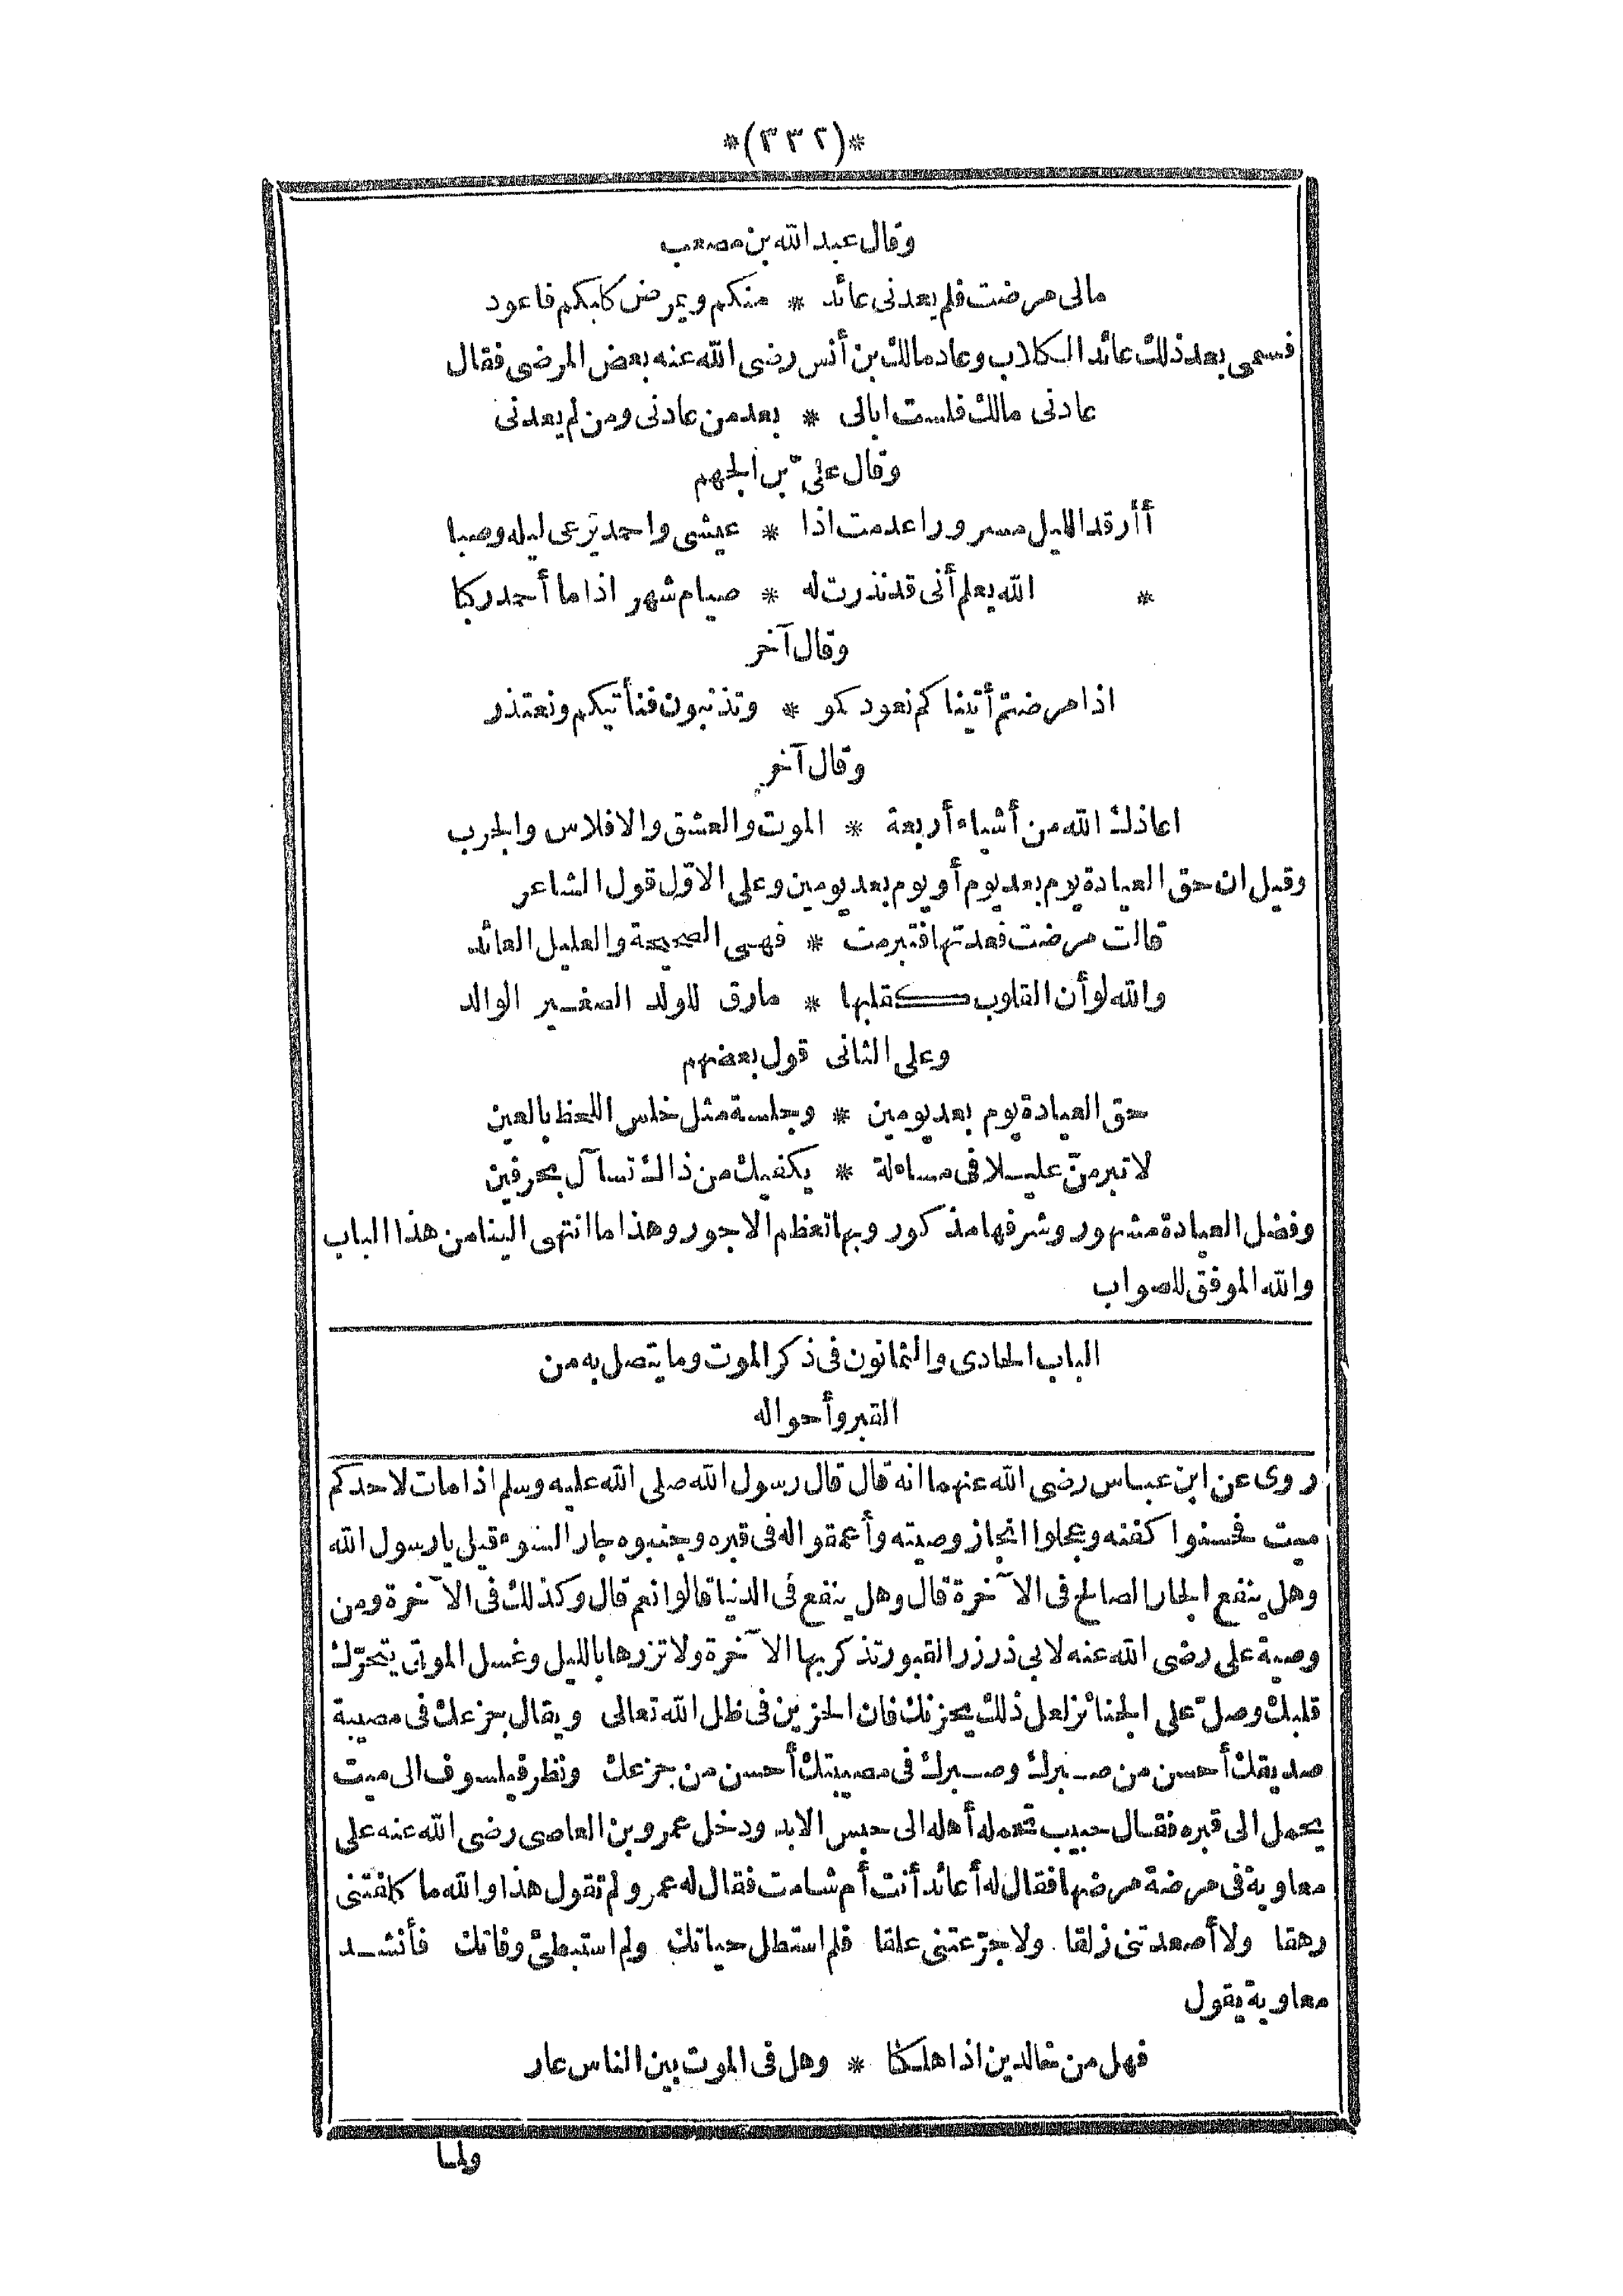 *(٣٣٢)*
وقال عبد الله بن مصعب
مالى مرضت فلم يعدنى عائد * منكم ويمرض كابكم فاعود
فسمى بعد ذلك عائد الكلاب وعاد مالك بن أنس رضى الله عنه بعض المرضى فقال
عادنى مالك فلست ابالى * بعد من عادنى ومن لم يعدنى
وقال علىّ بن الجهم
أأرقد الليل مسرورا عدمت اذا * عيشى واحمد يرعى ليله وصبا
* الله يعلم أنى قد نذرت له * صيام شهر اذا ما أحمد ركبا
وقال آخر
اذا مرضتم أتيناكم نعودكمو * وتذنبون فنأتيكم ونعتذر
وقال آخر
اعاذك الله من أشياء أربعة * الموت والعشق والافلاس والجرب
وقيل ان حق العيادة يوم بعد يوم أو يوم بعد يومين وعلى الاوّل قول الشاعر
قالت مرضت فعدتها فتبرمت * فهى الصحيحة والعليل العائد
والله لو أن القلوب كقلبها * مارق للولد الصغير الوالد
وعلى الثانى قول بعضهم
حق العيادة يوم بعد يومين * وجلسة مثل خلس اللحظ بالعين
لا تبرمنّ عليلا فى مساءلة * يكفيك من ذاك تسآل بحرفين
وفضل العيادة مشهور وشرفها مذكور وبها تعظم الاجور وهذا ما انتهى الينا من هذا الباب
والله الموفق للصواب
الباب الحادى والثمانون فى ذكر الموت وما يتصل به من
القبر وأحواله
روى عن ابن عباس رضى الله عنهما انه قال قال رسول الله صلى الله عليه وسلم اذا مات لاحدكم
ميت فحسنوا كفنه وعجلوا انجاز وصيته وأعمقوا له فى قبره وجنبوه جار السوء قيل يا رسول الله
وهل ينفع الجار الصالح فى الآخرة قال وهل ينفع فى الدنيا قالوا نعم قال وكذلك فى الآخرة ومن
وصية على رضى الله عنه لابى ذر زر القبور تذكر بها الآخرة ولا تزرها بالليل وغسل الموتى يتحرّك
قلبك وصلّ على الجنائز لعل ذلك يحزنك فان الحزين فى ظل الله تعالى ويقال جزعك فى مصيبة
صديقك أحسن من صبرك وصبرك فى مصيبتك أحسن من جزعك ونظر فيلسوف الى ميت
يحمل الى قبره فقال حبيب تحمله أهله الى حبس الابد ودخل عمرو بن العاصى رضى الله عنه على
معاوية فى مرضة مرضها فقال له أعائد أنت أم شامت فقال له عمرو لم تقول هذا والله ما كلفتنى
رهقا ولا أصعدتنى زلقا ولا جرّعتنى علقا فلم استطل حياتك ولم استبطئ وفاتك فأنشد
معاوية يقول
فهل من خالدين اذا هلكنا * وهل فى الموت بين الناس عار
ولما